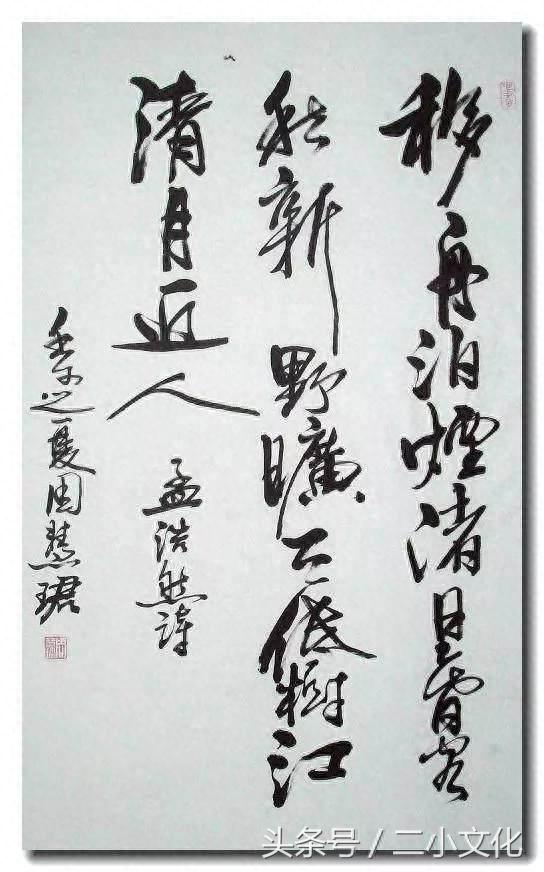 移舟泊煙渚日暮客
愁新野曠天低樹江
清月近人
孟浩然詩
壬午之夏周慧珺
头条号 / 二小文化